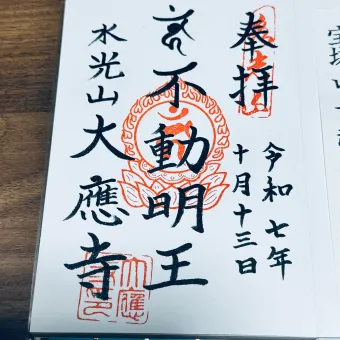 奉拝
令和七年
十月十三日
不動明王
水光山大應寺